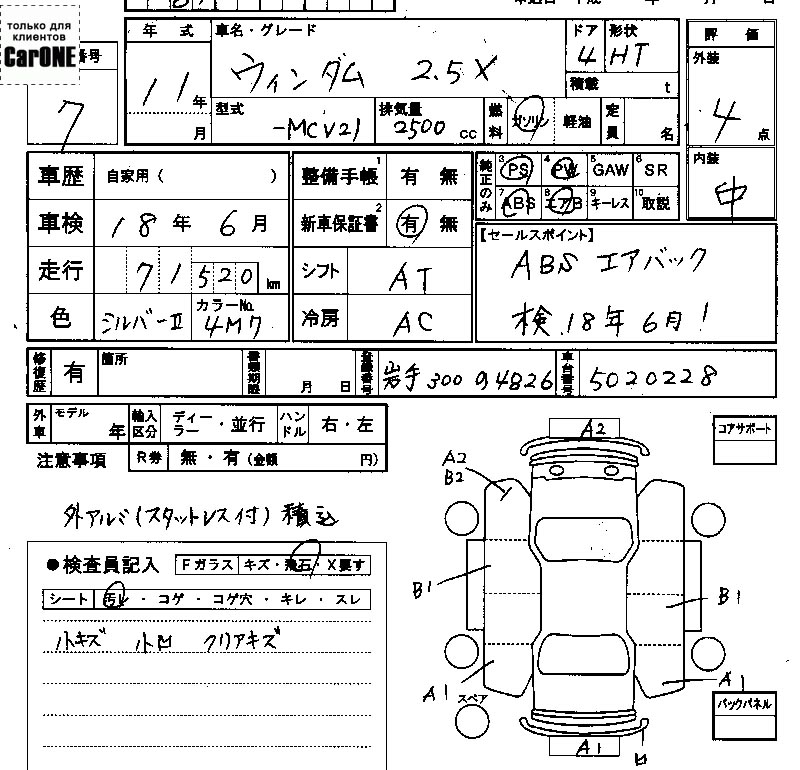 только для
клиентов
CarONE
年 式 車名・グレード ドア 形状 評 価
ウィンダム 2.5X 4 HT 外装
11年 積載 t
7 月 型式 -MCV21 排気量 2500 cc 燃料 ガソリン 軽油 定員 名 4 点
車歴 自家用( ) 整備手帳 1 有 無 純正のみ 3 PS 4 PW 5 GAW 6 SR 内装
7 ABS 8 エアB 9 キーレス 10 取説 中
車検 18年 6月 新車保証書 2 有 無
【セールスポイント】
走行 71520 km シフト AT ABS エアバック
色 シルバーII カラーNo. 4M7 冷房 AC 検.18年6月!
修復歴 有 箇所 書類期限 月 日 登録番号 岩手300 す4826 車台番号 5020228
外車 モデル 年 輸入区分 ディーラー・並行 ハンドル 右・左
注意事項 R券 無・有(金額 円)
コアサポート
A2
A2
B2
外アルミ(スタットレス付)積込
●検査員記入 Fガラス キズ・飛石・X要す
シート 汚レ・コゲ・コゲ穴・キレ・スレ
B1 B1
小キズ 小凹 クリアキズ
A1 A1
スペア
バックパネル
A1 凹